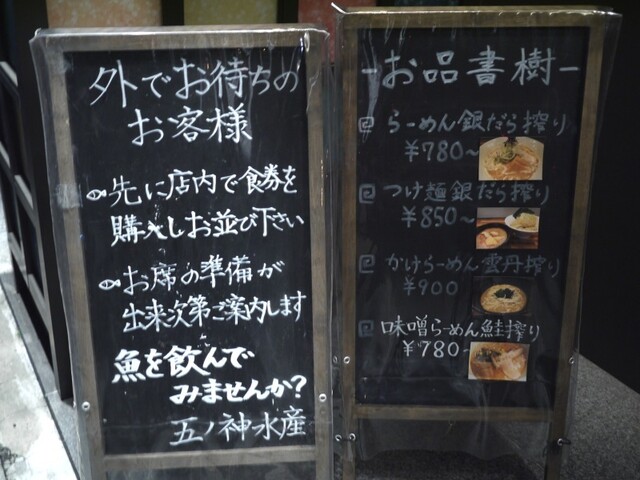 外でお待ちの
お客様
先に店内で食券を
購入しお並び下さい
お席の準備が
出来次第ご案内します
魚を飲んで
みませんか?
五ノ神水産
-お品書樹-
らーめん銀だら搾り
¥780~
つけ麺銀だら搾り
¥850~
かけらーめん雲丹搾り
¥900
味噌らーめん鮭搾り
¥780~